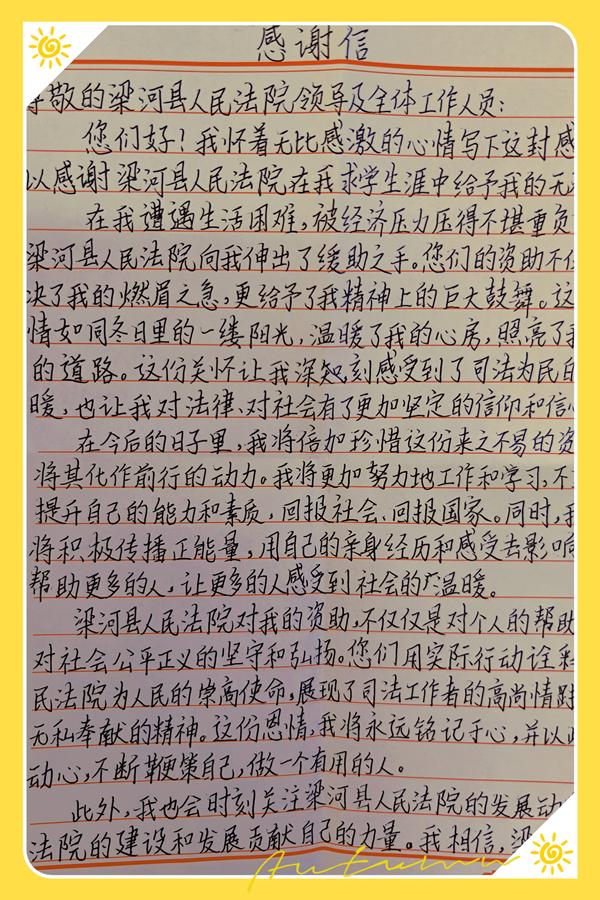 感谢信
尊敬的梁河县人民法院领导及全体工作人员：
您们好！我怀着无比感激的心情写下这封感
以感谢梁河县人民法院在我求学生涯中给予我的无
在我遭遇生活困难，被经济压力压得不堪重负
梁河县人民法院向我伸出了缓助之手。您们的资助不仅
决了我的燃眉之急，更给予了我精神上的巨大鼓舞。这
情如同冬日里的一缕阳光，温暖了我的心房，照亮了我
的道路。这份关怀让我深知刻感受到了司法为民的
暖，也让我对法律、对社会有了更加坚定的信仰和信心
在今后的日子里，我将倍加珍惜这份来之不易的资
将其化作前行的动力。我将更加努力地工作和学习，不
提升自己的能力和素质，回报社会、回报国家。同时，我
将积极传播正能量，用自己的亲身经历和感受去影响
帮助更多的人，让更多的人感受到社会的温暖。
梁河县人民法院对我的资助，不仅仅是对个人的帮助
对社会公平正义的坚守和弘扬。您们用实际行动诠释
民法院为人民的崇高使命，展现了司法工作者的高尚情
无私奉献的精神。这份恩情，我将永远铭记于心，并以此
动心，不断鞭策自己，做一个有用的人。
此外，我也会时刻关注梁河县人民法院的发展动
法院的建设和发展贡献自己的力量。我相信，梁
Autumn